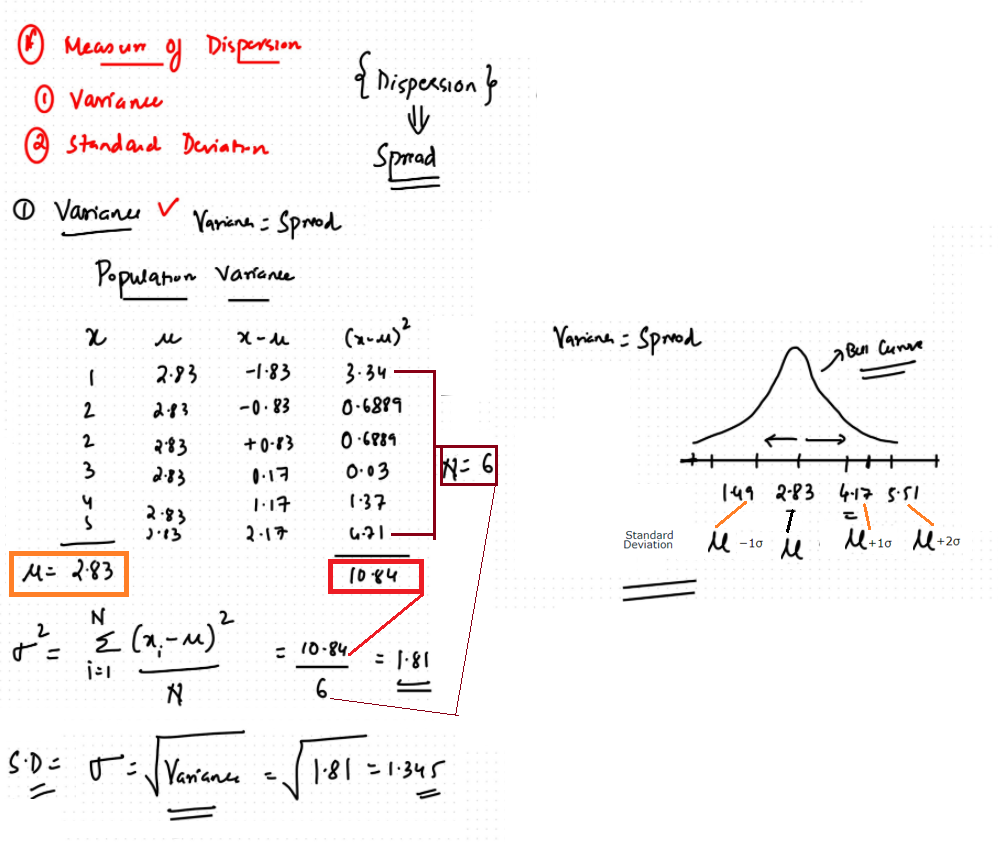 * Measure of Dispersion
① Variance
② Standard Deviation
{ Dispersion }
⇓
Spread
① Variance ✓ Variance = Spread
Population Variance
x μ x-μ (x-μ)²
1 2.83 -1.83 3.34
2 2.83 -0.83 0.6889
2 2.83 +0.83 0.6889
3 2.83 0.17 0.03
4 2.83 1.17 1.37
5 2.83 2.17 4.71
N = 6
μ = 2.83 10.84
σ² = N Σ i=1 (xᵢ-μ)² / N = 10.84 / 6 = 1.81
S.D = σ = √Variance = √1.81 = 1.345
Variance = Spread
→ Bell Curve
← →
1.49 2.83 4.17 5.51
Standard
Deviation
μ -1σ μ μ+1σ μ+2σ